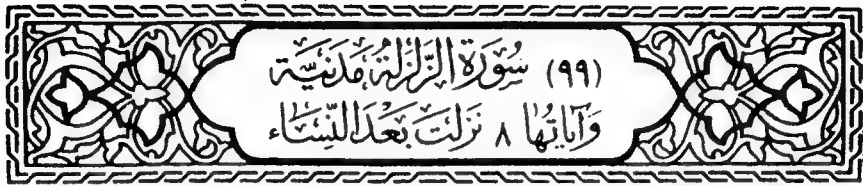 (٩٩) سُورَةُ الزَّلْزَلَةِ مَدَنِيَّة
وَآيَاتُهَا ٨ نَزَلَتْ بَعْدَ النِّسَاء